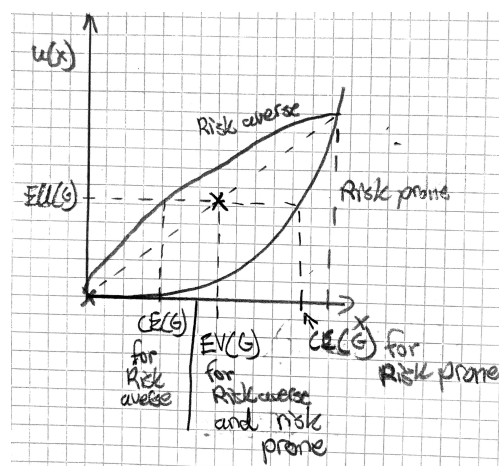 u(x)
Risk averse
EU(G)
Risk prone
x
CE(G)
for
Risk
averse
EV(G)
for
Risk averse
and risk
prone
CE(G) for
Risk prone